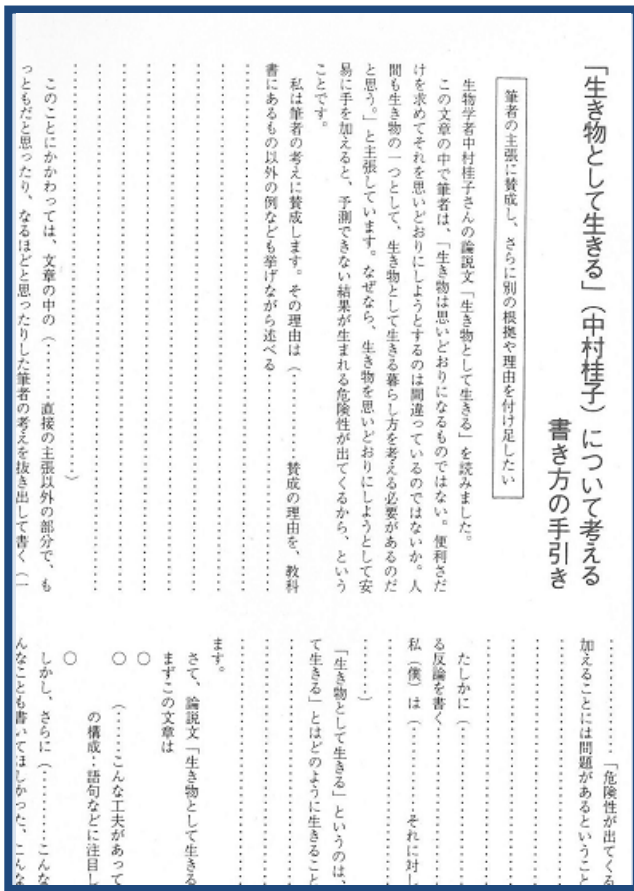 「生き物として生きる」（中村桂子）について考える
書き方の手引き
筆者の主張に賛成し、さらに別の根拠や理由を付け足したい
生物学者中村桂子さんの論説文「生き物として生きる」を読みました。
この文章の中で筆者は、「生き物は思いどおりになるものではない。便利さだ
けを求めてそれを思いどおりにしようとするのは間違っているのではないか。人
間も生き物の一つとして、生き物として生きる暮らし方を考える必要があるのだ
と思う。」と主張しています。なぜなら、生き物を思いどおりにしようとして安
易に手を加えると、予測できない結果が生まれる危険性が出てくるから、という
ことです。
私は筆者の考えに賛成します。その理由は（…………賛成の理由を、教科
書にあるもの以外の例なども挙げながら述べる…………………………
……………………………………………………………………
……………………………………………………………………
……………………………………………………………………
……………………………………………………………………
……………………………………………………………………
……………………………………………………………………
……………………………………………………）
このことにかかわっては、文章の中の（………直接の主張以外の部分で、も
っともだと思ったり、なるほどと思ったりした筆者の考えを抜き出して書く（一
…………「危険性が出てくる
加えることには問題があるということ
………………………………
………………………………
………………………………
たしかに（………………………
る反論を書く……………………
私（僕）は（…………それに対し
………………………………
………）
「生き物として生きる」というのは、
て生きる」とはどのように生きること
………………………………
………………………………
………………………………
ます。
さて、論説文「生き物として生きる
まずこの文章は
○
○　（……こんな工夫があって
の構成・語句などに注目し
○
しかし、さらに（…………こんな
んなことも書いてほしかった、こんな